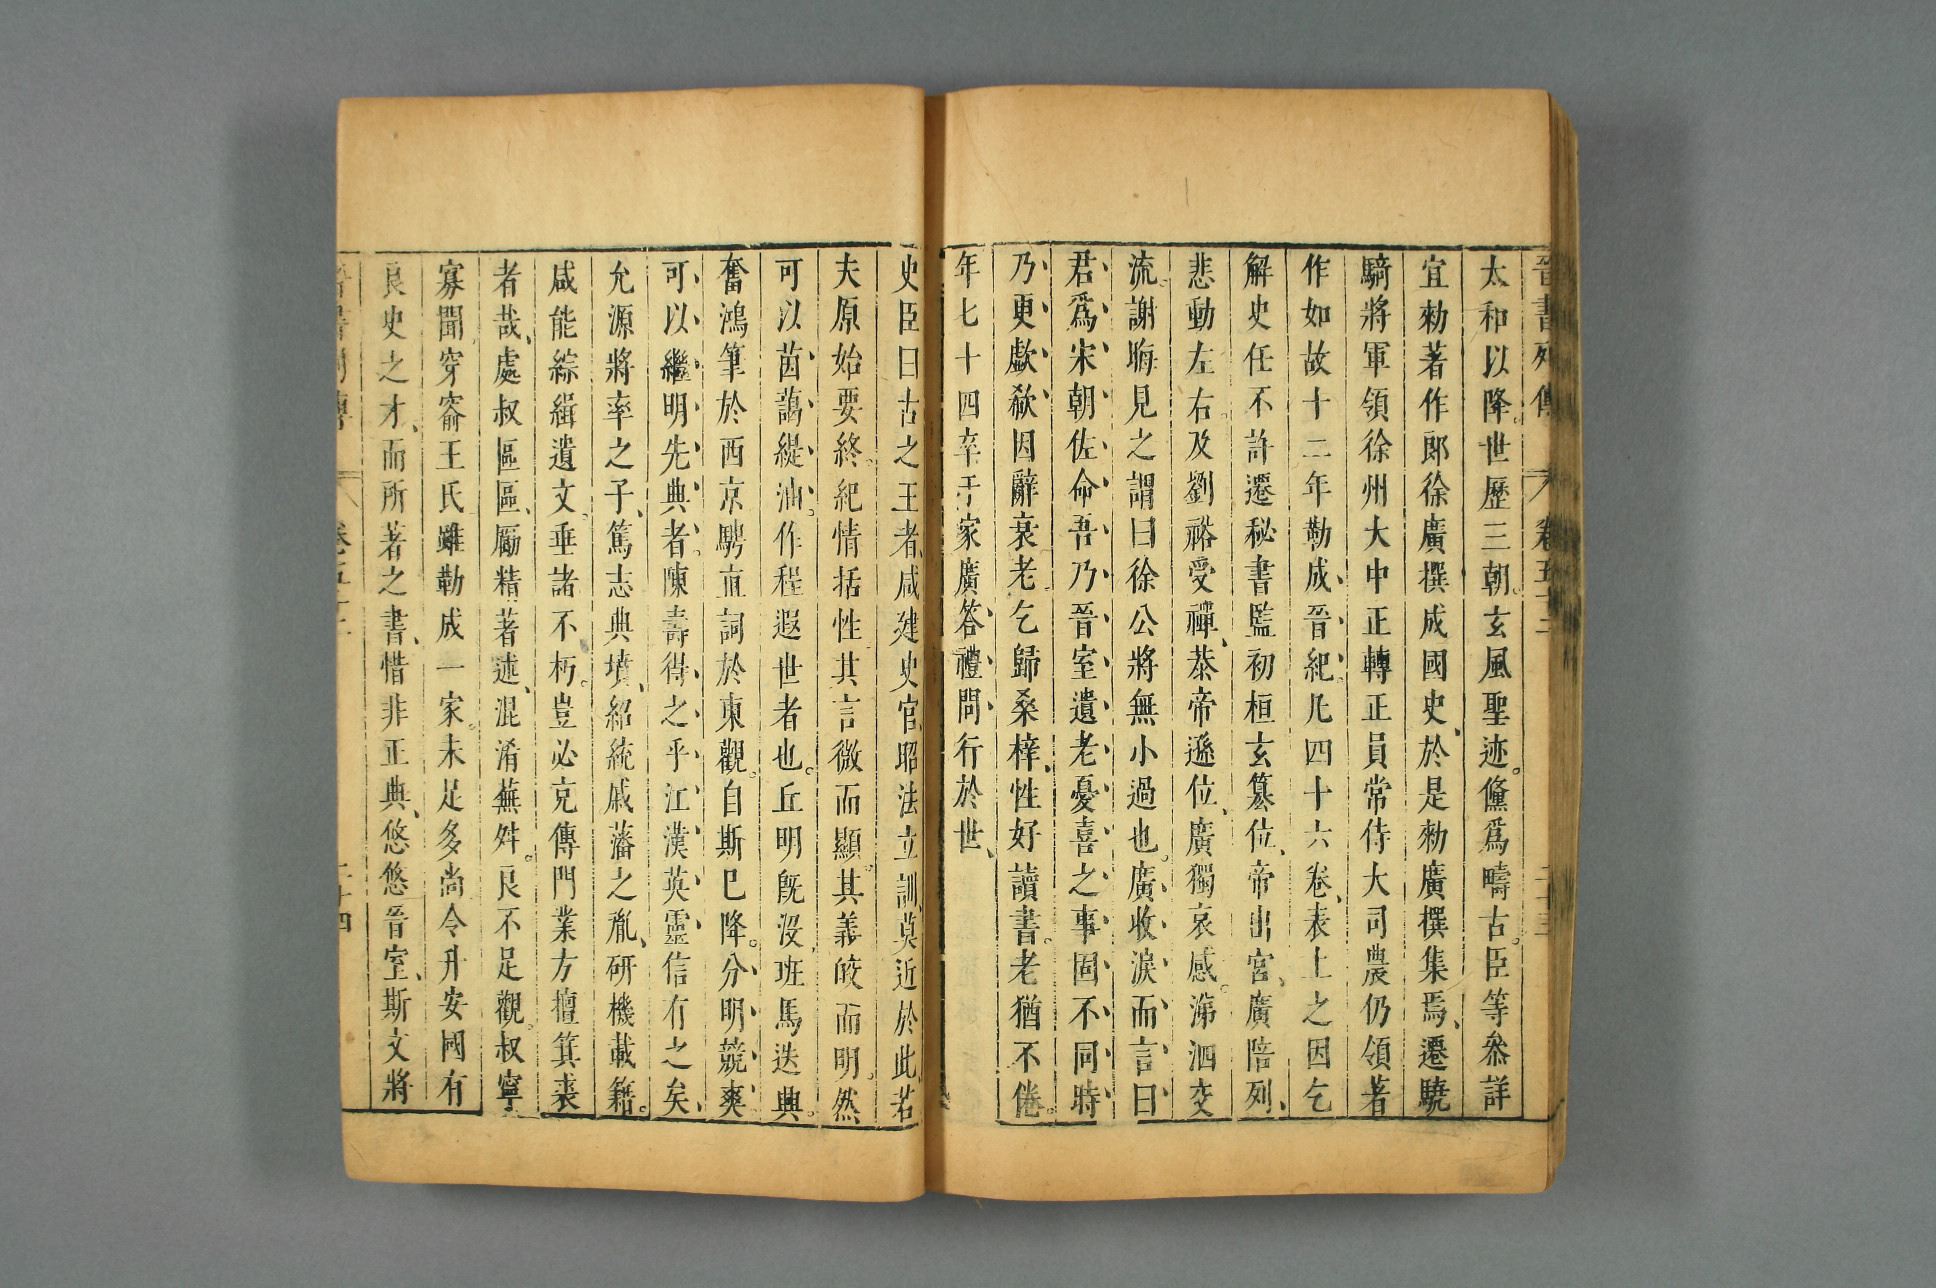 晉書列傳 卷五十二 二十三
太和以降。世歷三朝。玄風聖迹。儵爲疇古。臣等叅詳
宜勑著作郎徐廣撰成國史、於是勑廣撰集焉、遷驍
騎將軍領徐州大中正轉正員常侍大司農仍領著
作如故十二年勒成、晉、紀。凡四十六卷、表上之因乞
解史任不許遷秘書監初桓玄簒位、帝出宮、廣陪列、
悲動左右。及劉裕受禪、恭帝遜位、廣獨哀感。涕泗交
流。謝晦見之謂曰徐公將無小過也。廣、收、淚、而、言、曰
君、爲、宋、朝、佐、命、吾、乃、晉、室、遺、老、憂、喜、之、事、固、不、同、時、
乃、更、歔、欷、因辭衰老乞歸桑梓、性好讀書。老猶不倦。
年七十四卒于家廣、答、禮、問、行於世、
史臣曰古之王者、咸建史官、昭法立訓、莫近於此、若
夫原始要終。紀情括性、其言微而顯。其義皎而明。然
可以、茵、藹、緹、油。作程遐世者也。丘明旣沒、班馬迭興。
奮鴻筆於西京騁直詞於東觀。自斯已降。分、明、競、爽、
可、以、繼、明、先、典、者。陳、壽、得、之、乎、江、漢、英、靈、信有之矣、
允源將率之子、篤志典墳、紹統戚藩之胤、研機載籍。
咸能綜緝遺文。垂諸不朽。豈必克傳門業方擅箕裘
者哉、處叔區區、勵精著述、混淆蕪舛。良不足觀。叔寧
寡聞。穿窬王氏雖勒成一家。未足多尚令升安國有
良史之才、而所著之書、惜非正典、悠悠晉室、斯文將
晉書列傳 卷五十二 二十四